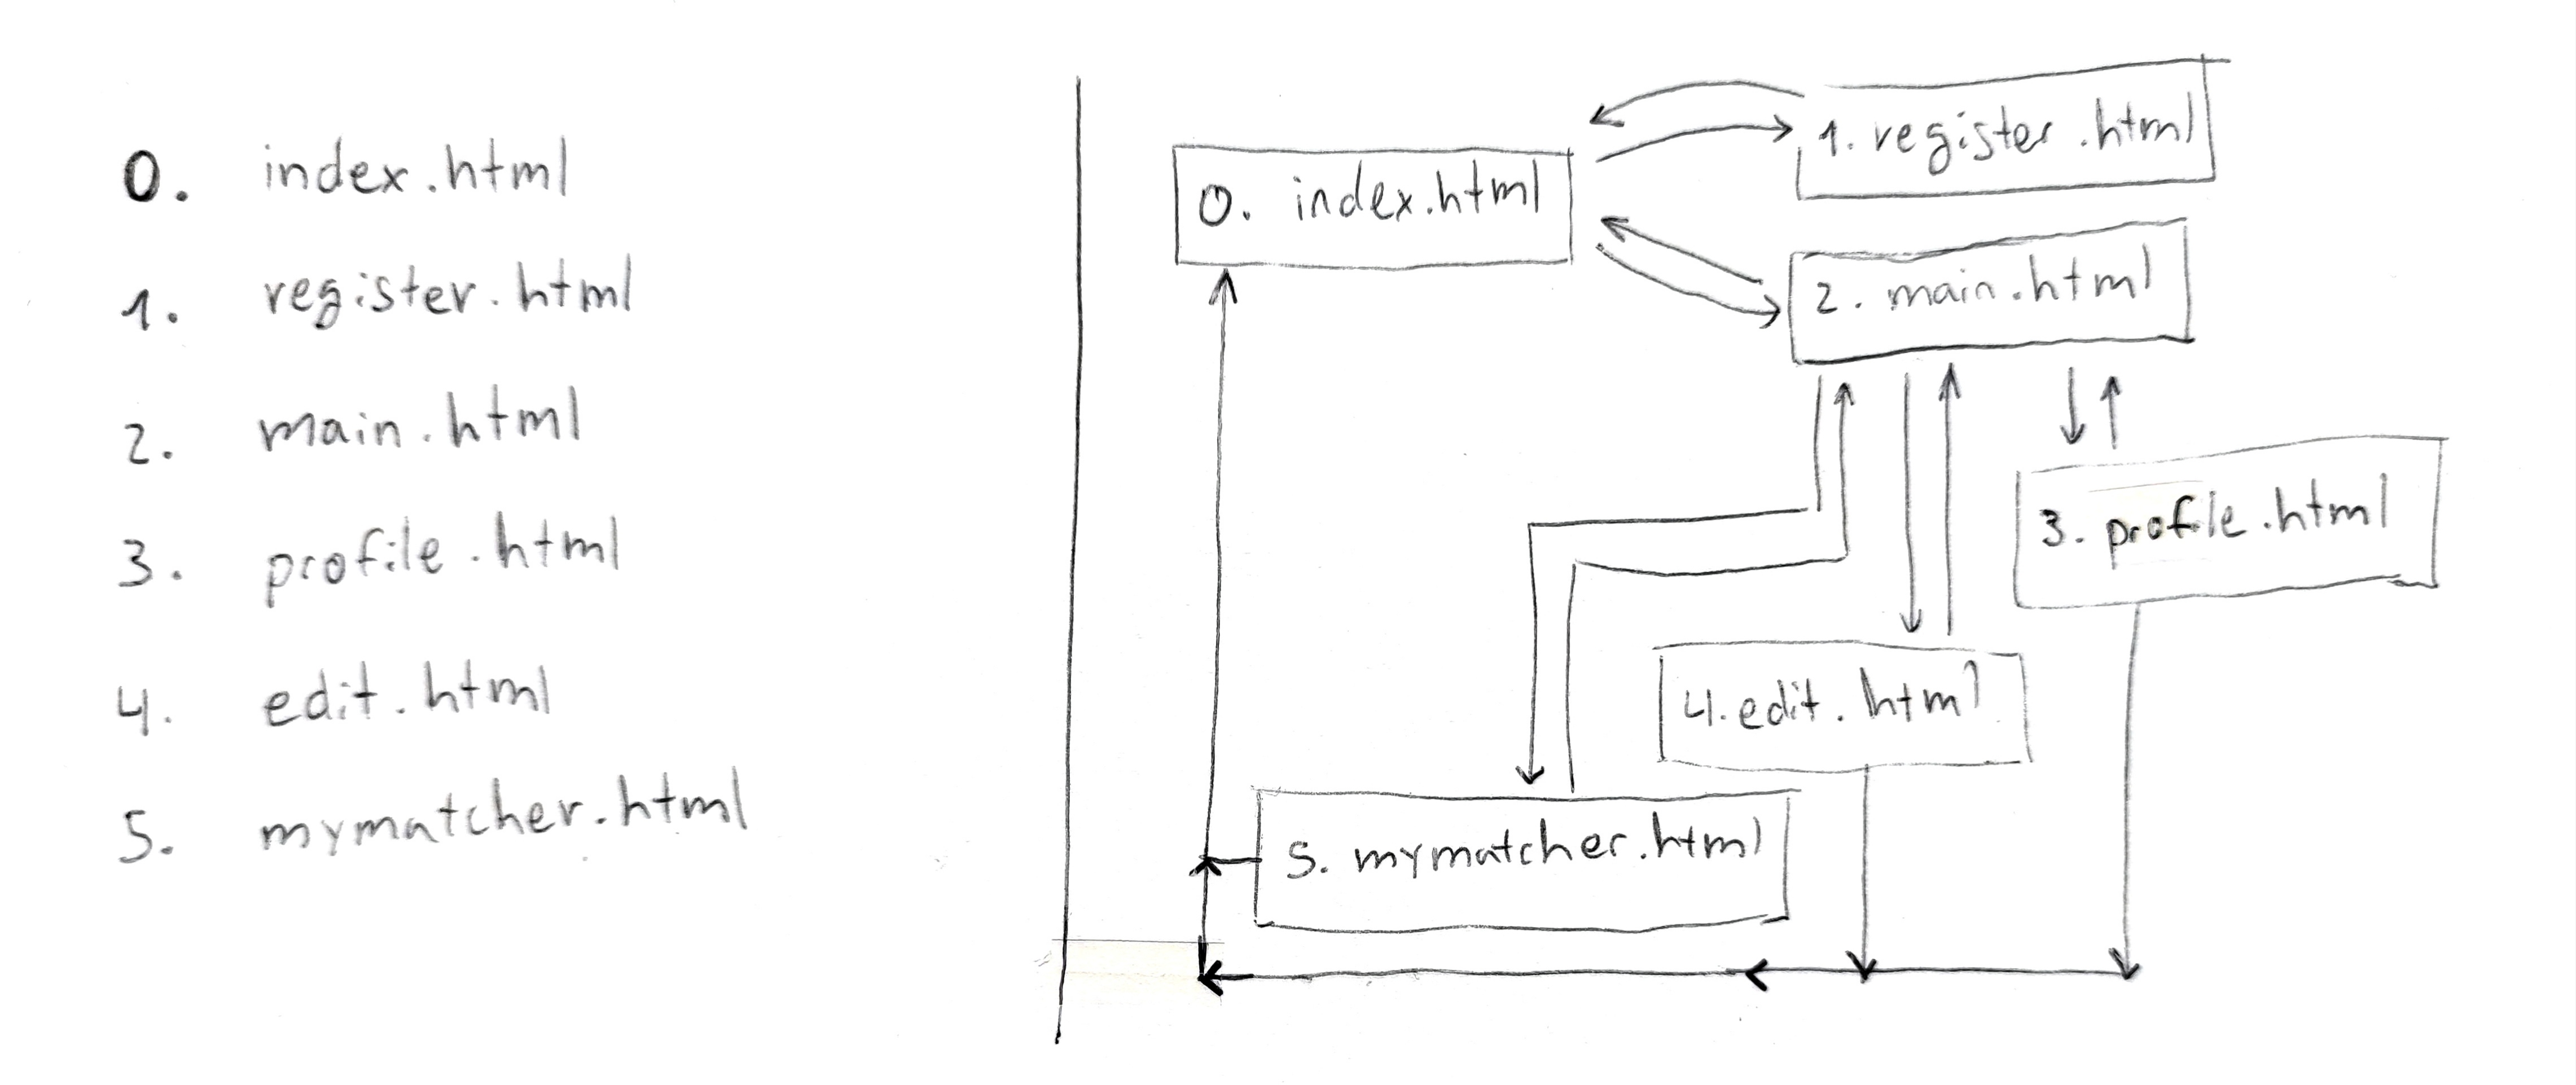 0. index.html
1. register.html
2. main.html
3. profile.html
4. edit.html
5. mymatcher.html
0. index.html
1. register.html
2. main.html
3. profile.html
4. edit.html
5. mymatcher.html